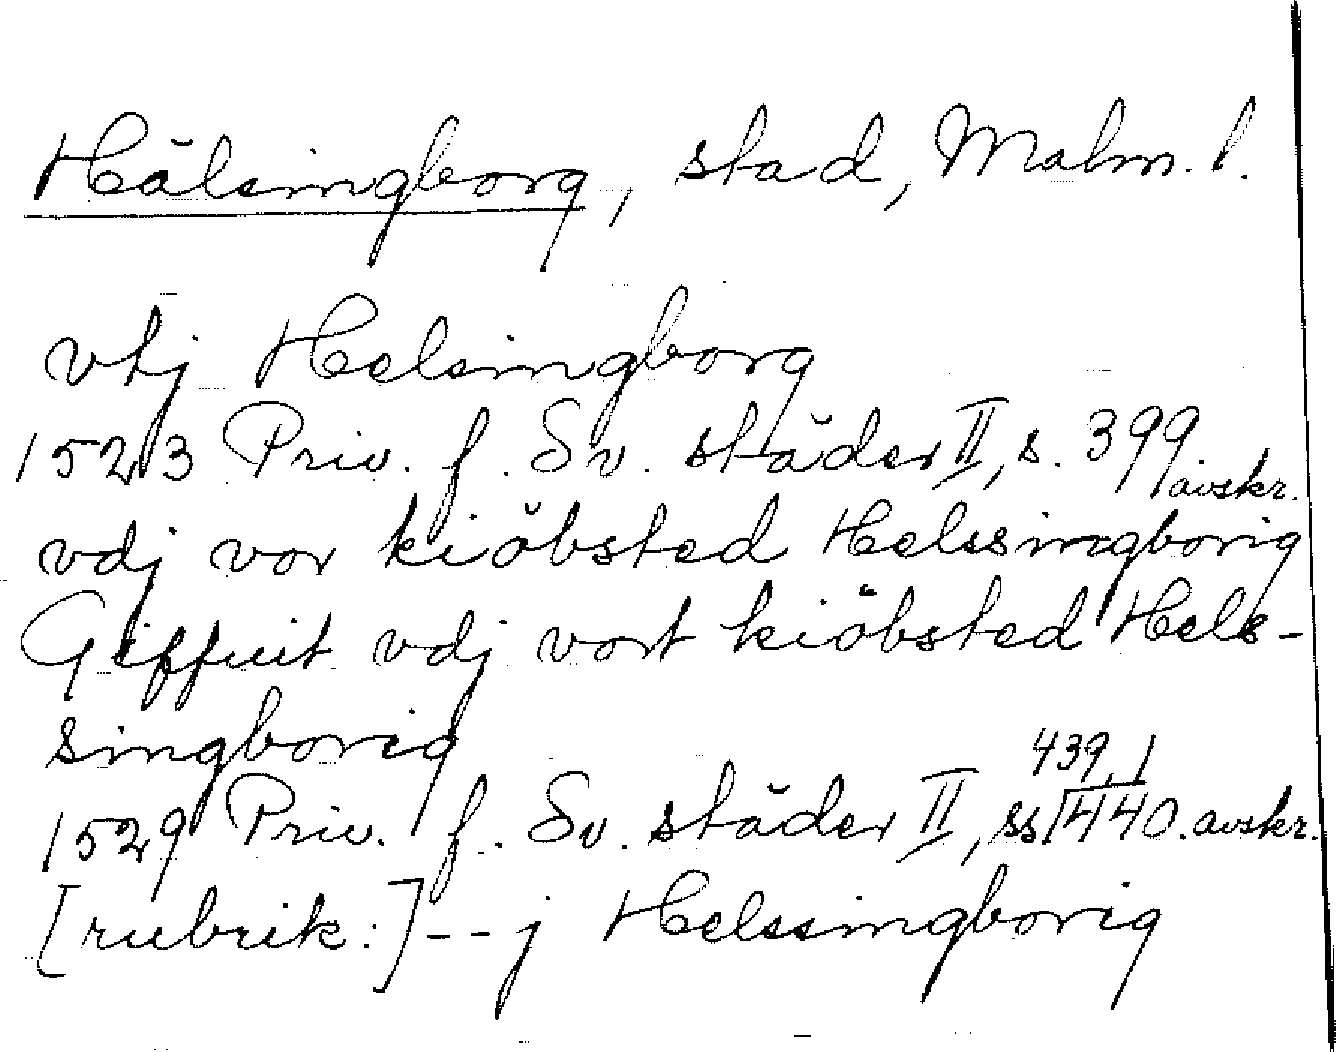 Hälsingborg, stad, Malm. l.
vtj Helsingborg
1523 Priv. f. Sv. städer II, s. 399 avskr.
vdj vor kiöbsted Helssingborig
Giffuit vdj vort kiöbsted Hels-
singborig
1529 Priv. f. Sv. städer II, ss. 439, 440. avskr.
[rubrik:] -- j Helssingborig